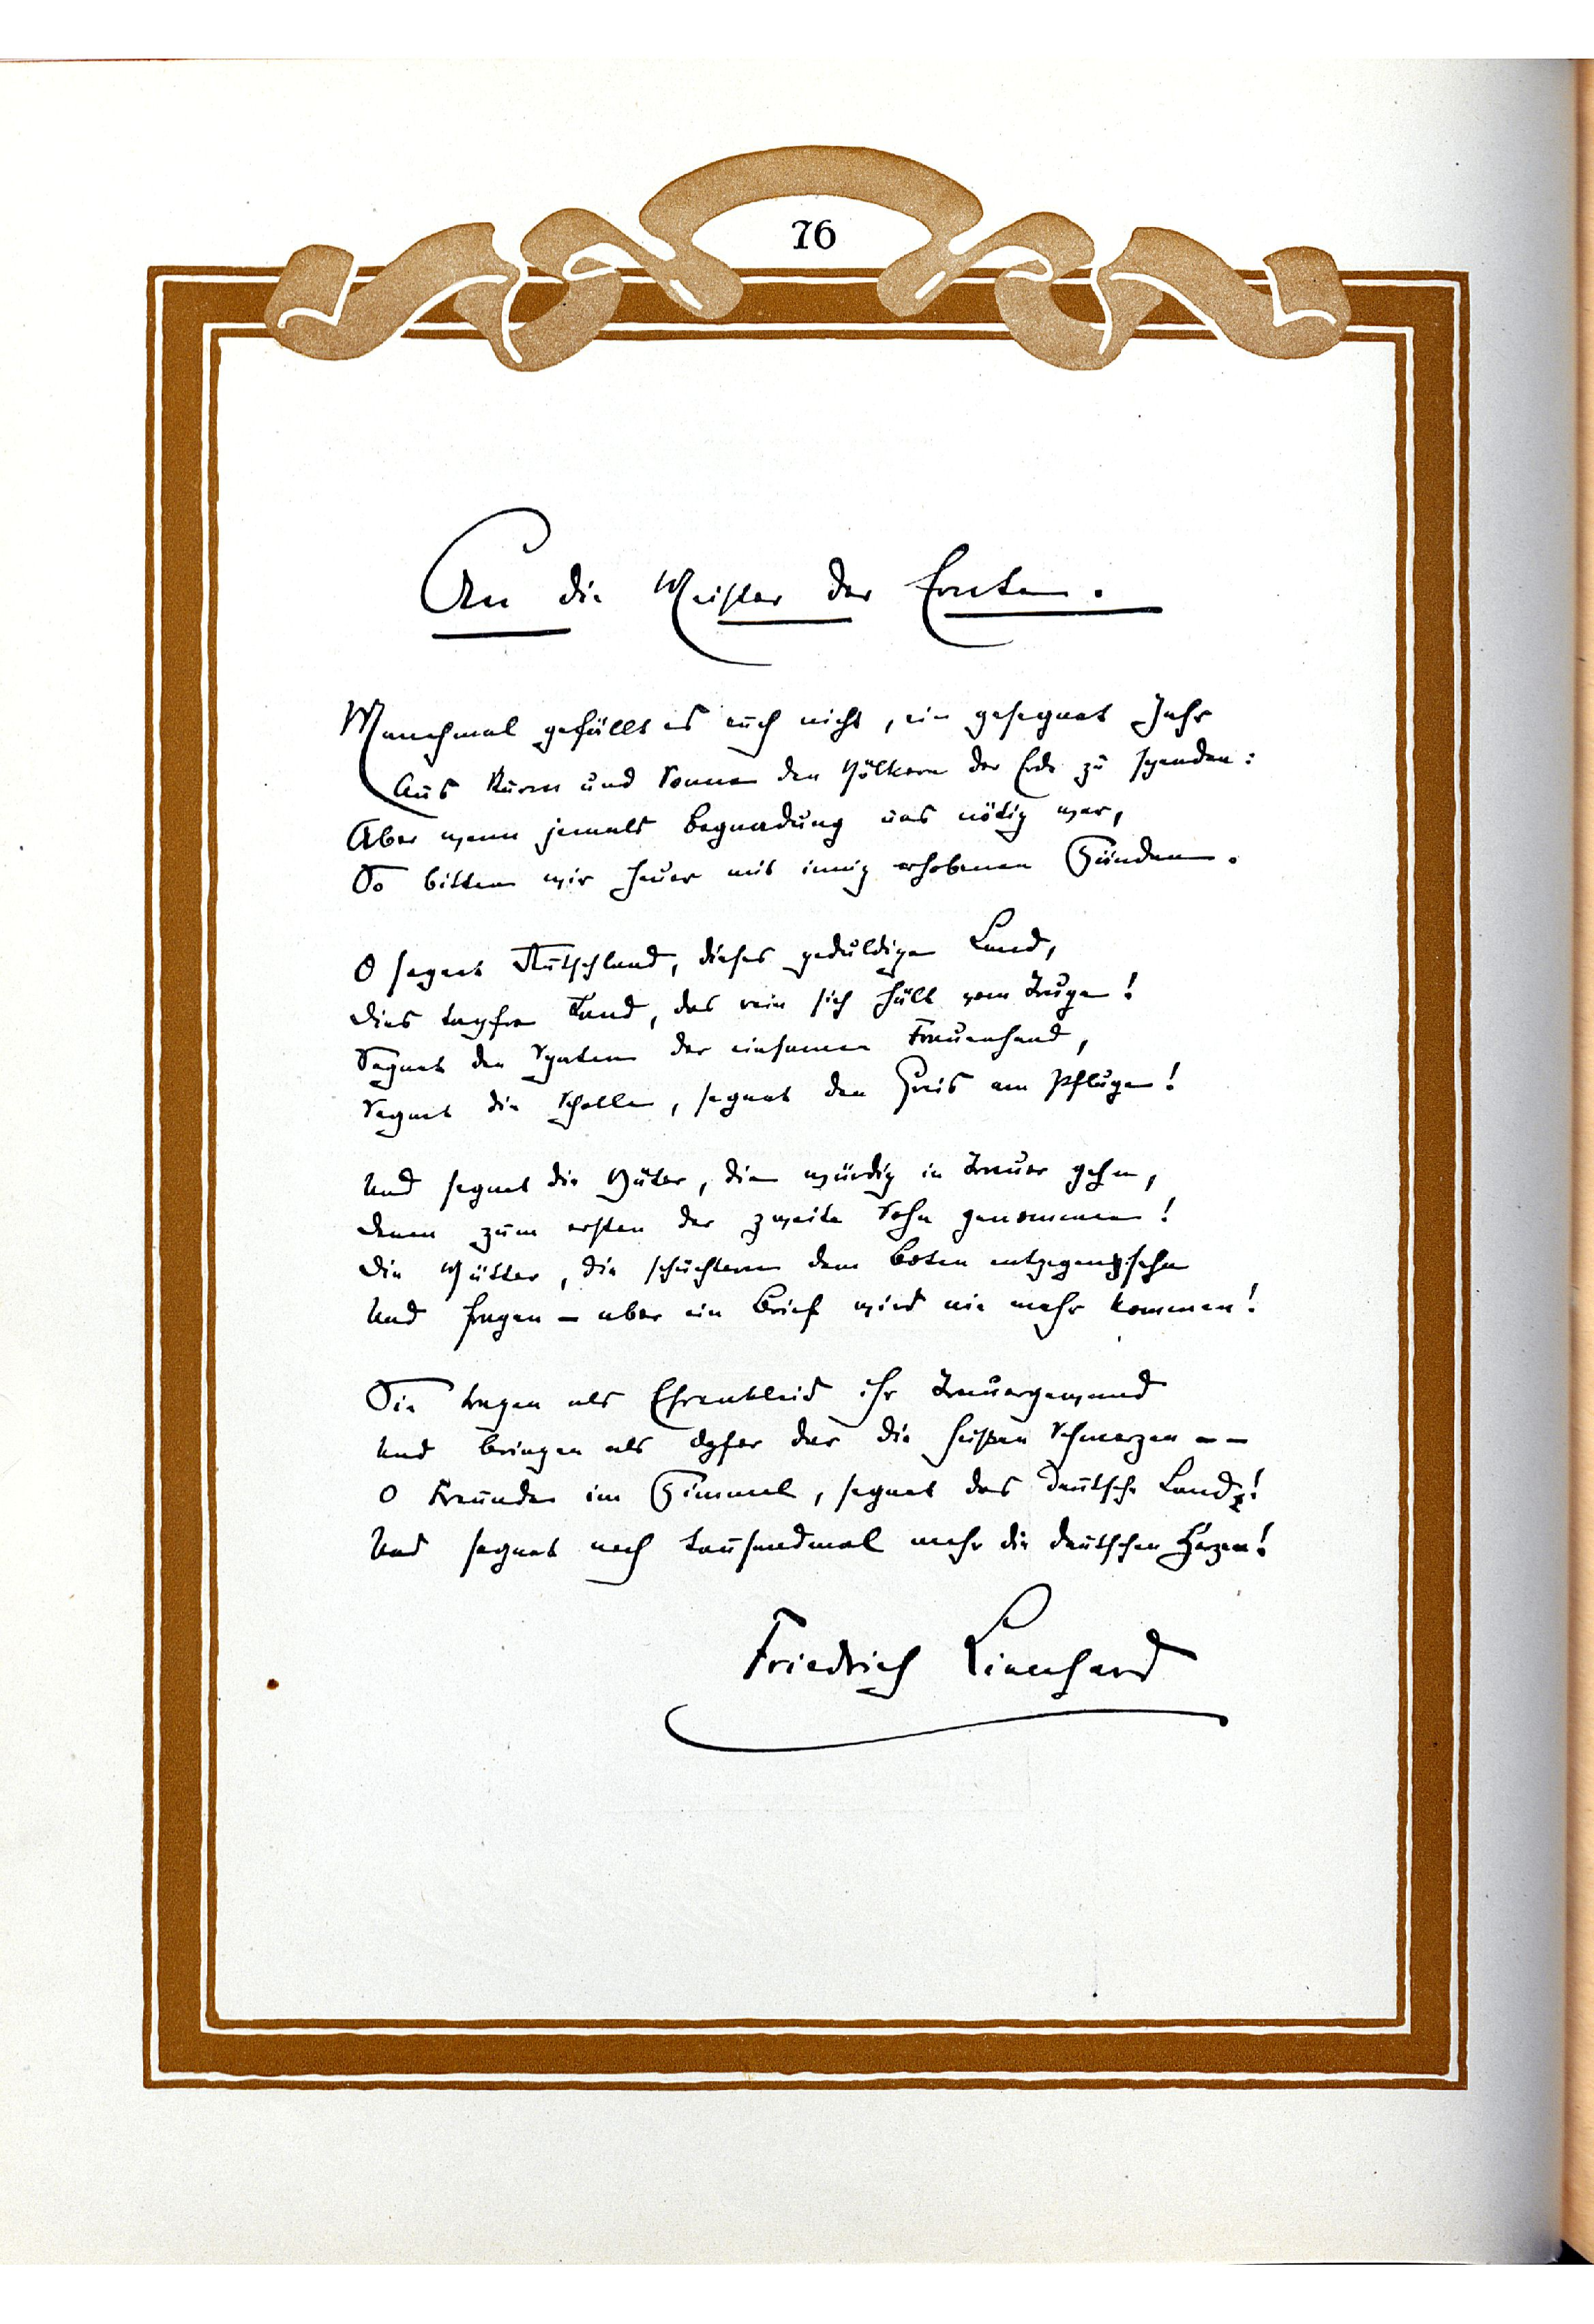 76
An die Meister der Ernten.
Manchmal gefällt es euch nicht, ein gesegnet Jahr
Aus Raum und Sonne den Völkern der Erde zu spenden:
Aber wenn jemals Begnadung uns nötig war,
So bitten wir heuer mit innig erhobenen Händen.
O segnet Deutschland, dieses geduldige Land,
Dies tapfre Land, das rein sich hält vom Truge!
Segnet den Spaten der einsamen Frauenhand,
Segnet die Scholle, segnet den Greis am Pfluge!
Und segnet die Väter, die würdig in Trauer gehn,
Denen zum ersten der zweite Sohn genommen!
Die Mütter, die schüchtern dem Boten entgegensehn
Und fragen – aber ein Brief wird nie mehr kommen!
Sie tragen als Ehrenkleid ihr Trauergewand
Und bringen als Opfer dar die heißen Schmerzen – –
O Freunde im Himmel, segnet das deutsche Land!
Und segnet noch tausendmal mehr die deutschen Herzen!
Friedrich Lienhard